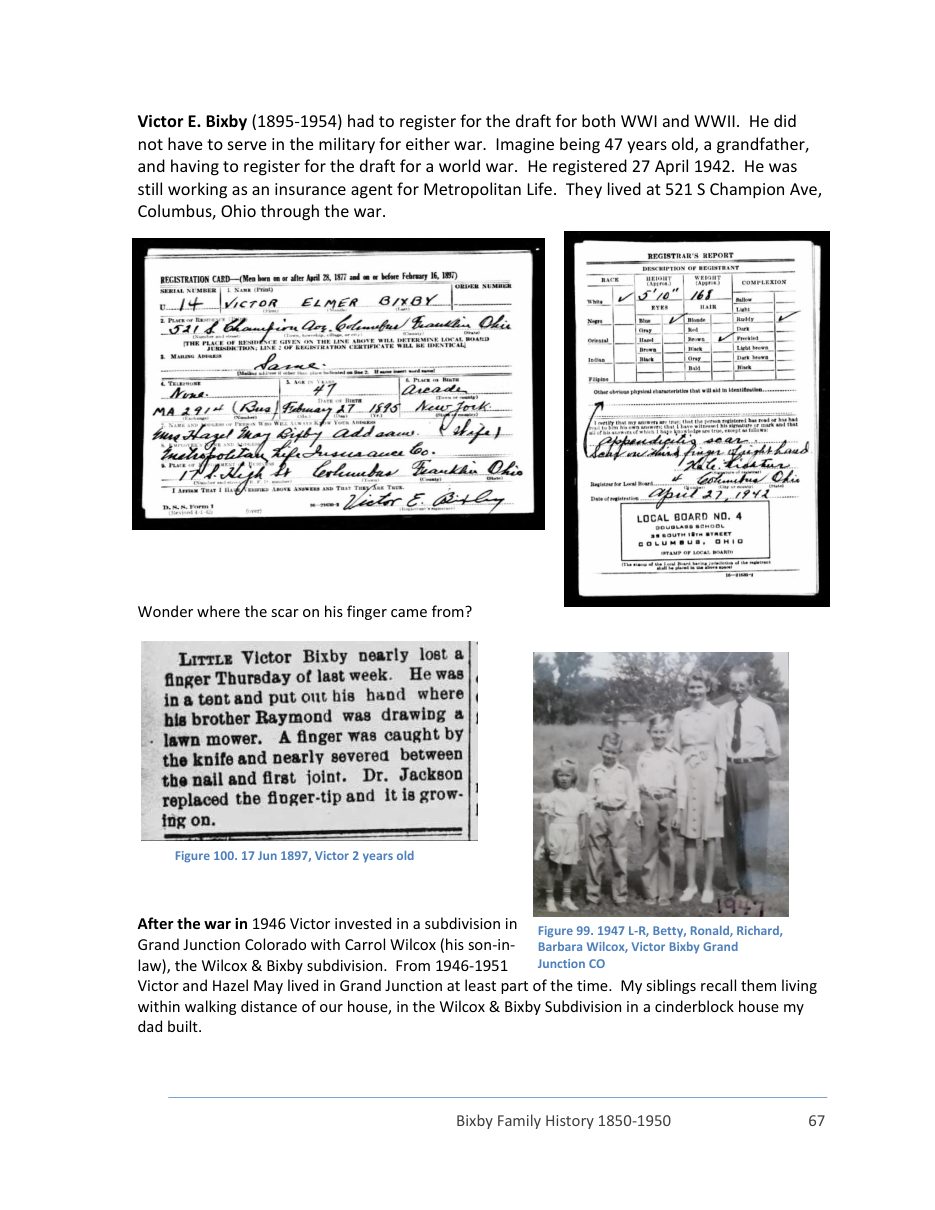 Victor E. Bixby (1895-1954) had to register for the draft for both WWI and WWII.  He did
not have to serve in the military for either war.  Imagine being 47 years old, a grandfather,
and having to register for the draft for a world war.  He registered 27 April 1942.  He was
still working as an insurance agent for Metropolitan Life.  They lived at 521 S Champion Ave,
Columbus, Ohio through the war.
REGISTRATION CARD—(Men born on or after April 28, 1877 and on or before February 16, 1897)
SERIAL NUMBER 1. NAME (Print) ORDER NUMBER
U 14 VICTOR ELMER BIXBY
(First) (Middle) (Last)
521 S. Champion Ave. Columbus Franklin Ohio
[THE PLACE OF RESIDENCE GIVEN ON THE LINE ABOVE WILL DETERMINE LOCAL BOARD
JURISDICTION; LINE 2 OF REGISTRATION CERTIFICATE WILL BE IDENTICAL]
3. MAILING ADDRESS
Same.
4. TELEPHONE 5. AGE IN YEARS 6. PLACE OF BIRTH
None. 47 Arcade
DATE OF BIRTH
MA 2914 (Bus) February 27 1895 New York
Mrs Hazel May Bixby Add same. (Wife)
Metropolitan Life Insurance Co.
17 S. High St Columbus Franklin Ohio
I AFFIRM THAT I HAVE VERIFIED ABOVE ANSWERS AND THAT THEY ARE TRUE.
D. S. S. Form 1 Victor E. Bixby
(over)
REGISTRAR'S REPORT
DESCRIPTION OF REGISTRANT
RACE HEIGHT (Approx.) WEIGHT (Approx.) COMPLEXION
White ✓ 5'10" 168 Sallow
EYES HAIR Light
Negro Blue ✓ Blonde Ruddy ✓
Gray Red Dark
Oriental Hazel Brown ✓ Freckled
Brown Black Light brown
Indian Black Gray Dark brown
Bald Black
Filipino
Other obvious physical characteristics that will aid in identification
Appendicitis scar
Scar on third finger of right hand
Registrar for Local Board 4 Columbus Ohio
Date of registration April 27, 1942
LOCAL BOARD NO. 4
DOUGLASS SCHOOL
COLUMBUS, OHIO
(STAMP OF LOCAL BOARD)
(The stamp of the Local Board having jurisdiction of the registrant
shall be placed in the above space)
Wonder where the scar on his finger came from?
LITTLE Victor Bixby nearly lost a
finger Thursday of last week. He was
in a tent and put out his hand where
his brother Raymond was drawing a
lawn mower. A finger was caught by
the knife and nearly severed between
the nail and first joint. Dr. Jackson
replaced the finger-tip and it is grow-
ing on.
Figure 100. 17 Jun 1897, Victor 2 years old
1947
Figure 99. 1947 L-R, Betty, Ronald, Richard,
Barbara Wilcox, Victor Bixby Grand
Junction CO
After the war in 1946 Victor invested in a subdivision in
Grand Junction Colorado with Carrol Wilcox (his son-in-
law), the Wilcox & Bixby subdivision.  From 1946-1951
Victor and Hazel May lived in Grand Junction at least part of the time.  My siblings recall them living
within walking distance of our house, in the Wilcox & Bixby Subdivision in a cinderblock house my
dad built.
Bixby Family History 1850-1950 67